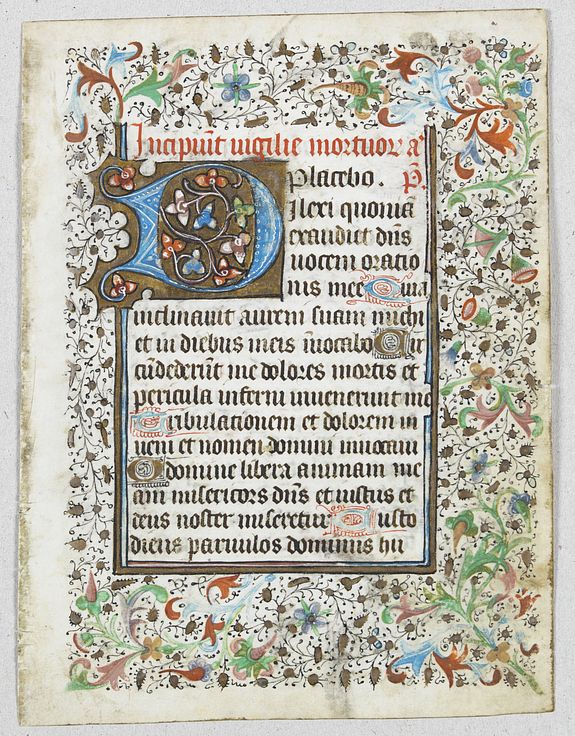 Incipiũt vigilie mortuoꝝ a
Placebo. P.
Dilexi quoniã
exaudiet dñs
vocem oratio
nis mee Quia
inclinavit aurem suam michi
et in diebus meis ĩuocabo Cir
cũdederũt me dolores mortis et
pericula inferni invenerunt me
Tribulationem et dolorem in
ueni et nomen domini inuocaui
O domine libera animam me
am misericors dñs et iustus et
deus noster miseretur Custo
diens paruulos dominus hu